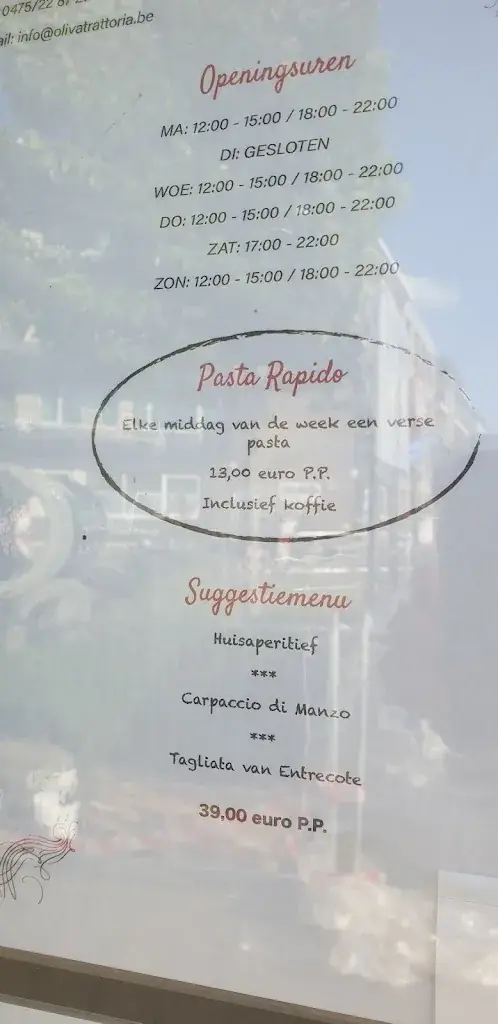 0475/22
info@olivatrattoria.be
Openingsuren
MA: 12:00 - 15:00 / 18:00 - 22:00
DI: GESLOTEN
WOE: 12:00 - 15:00 / 18:00 - 22:00
DO: 12:00 - 15:00 / 18:00 - 22:00
ZAT: 17:00 - 22:00
ZON: 12:00 - 15:00 / 18:00 - 22:00
Pasta Rapido
Elke middag van de week een verse
pasta
13,00 euro P.P.
Inclusief koffie
Suggestiemenu
Huisaperitief
***
Carpaccio di Manzo
***
Tagliata van Entrecote
39,00 euro P.P.